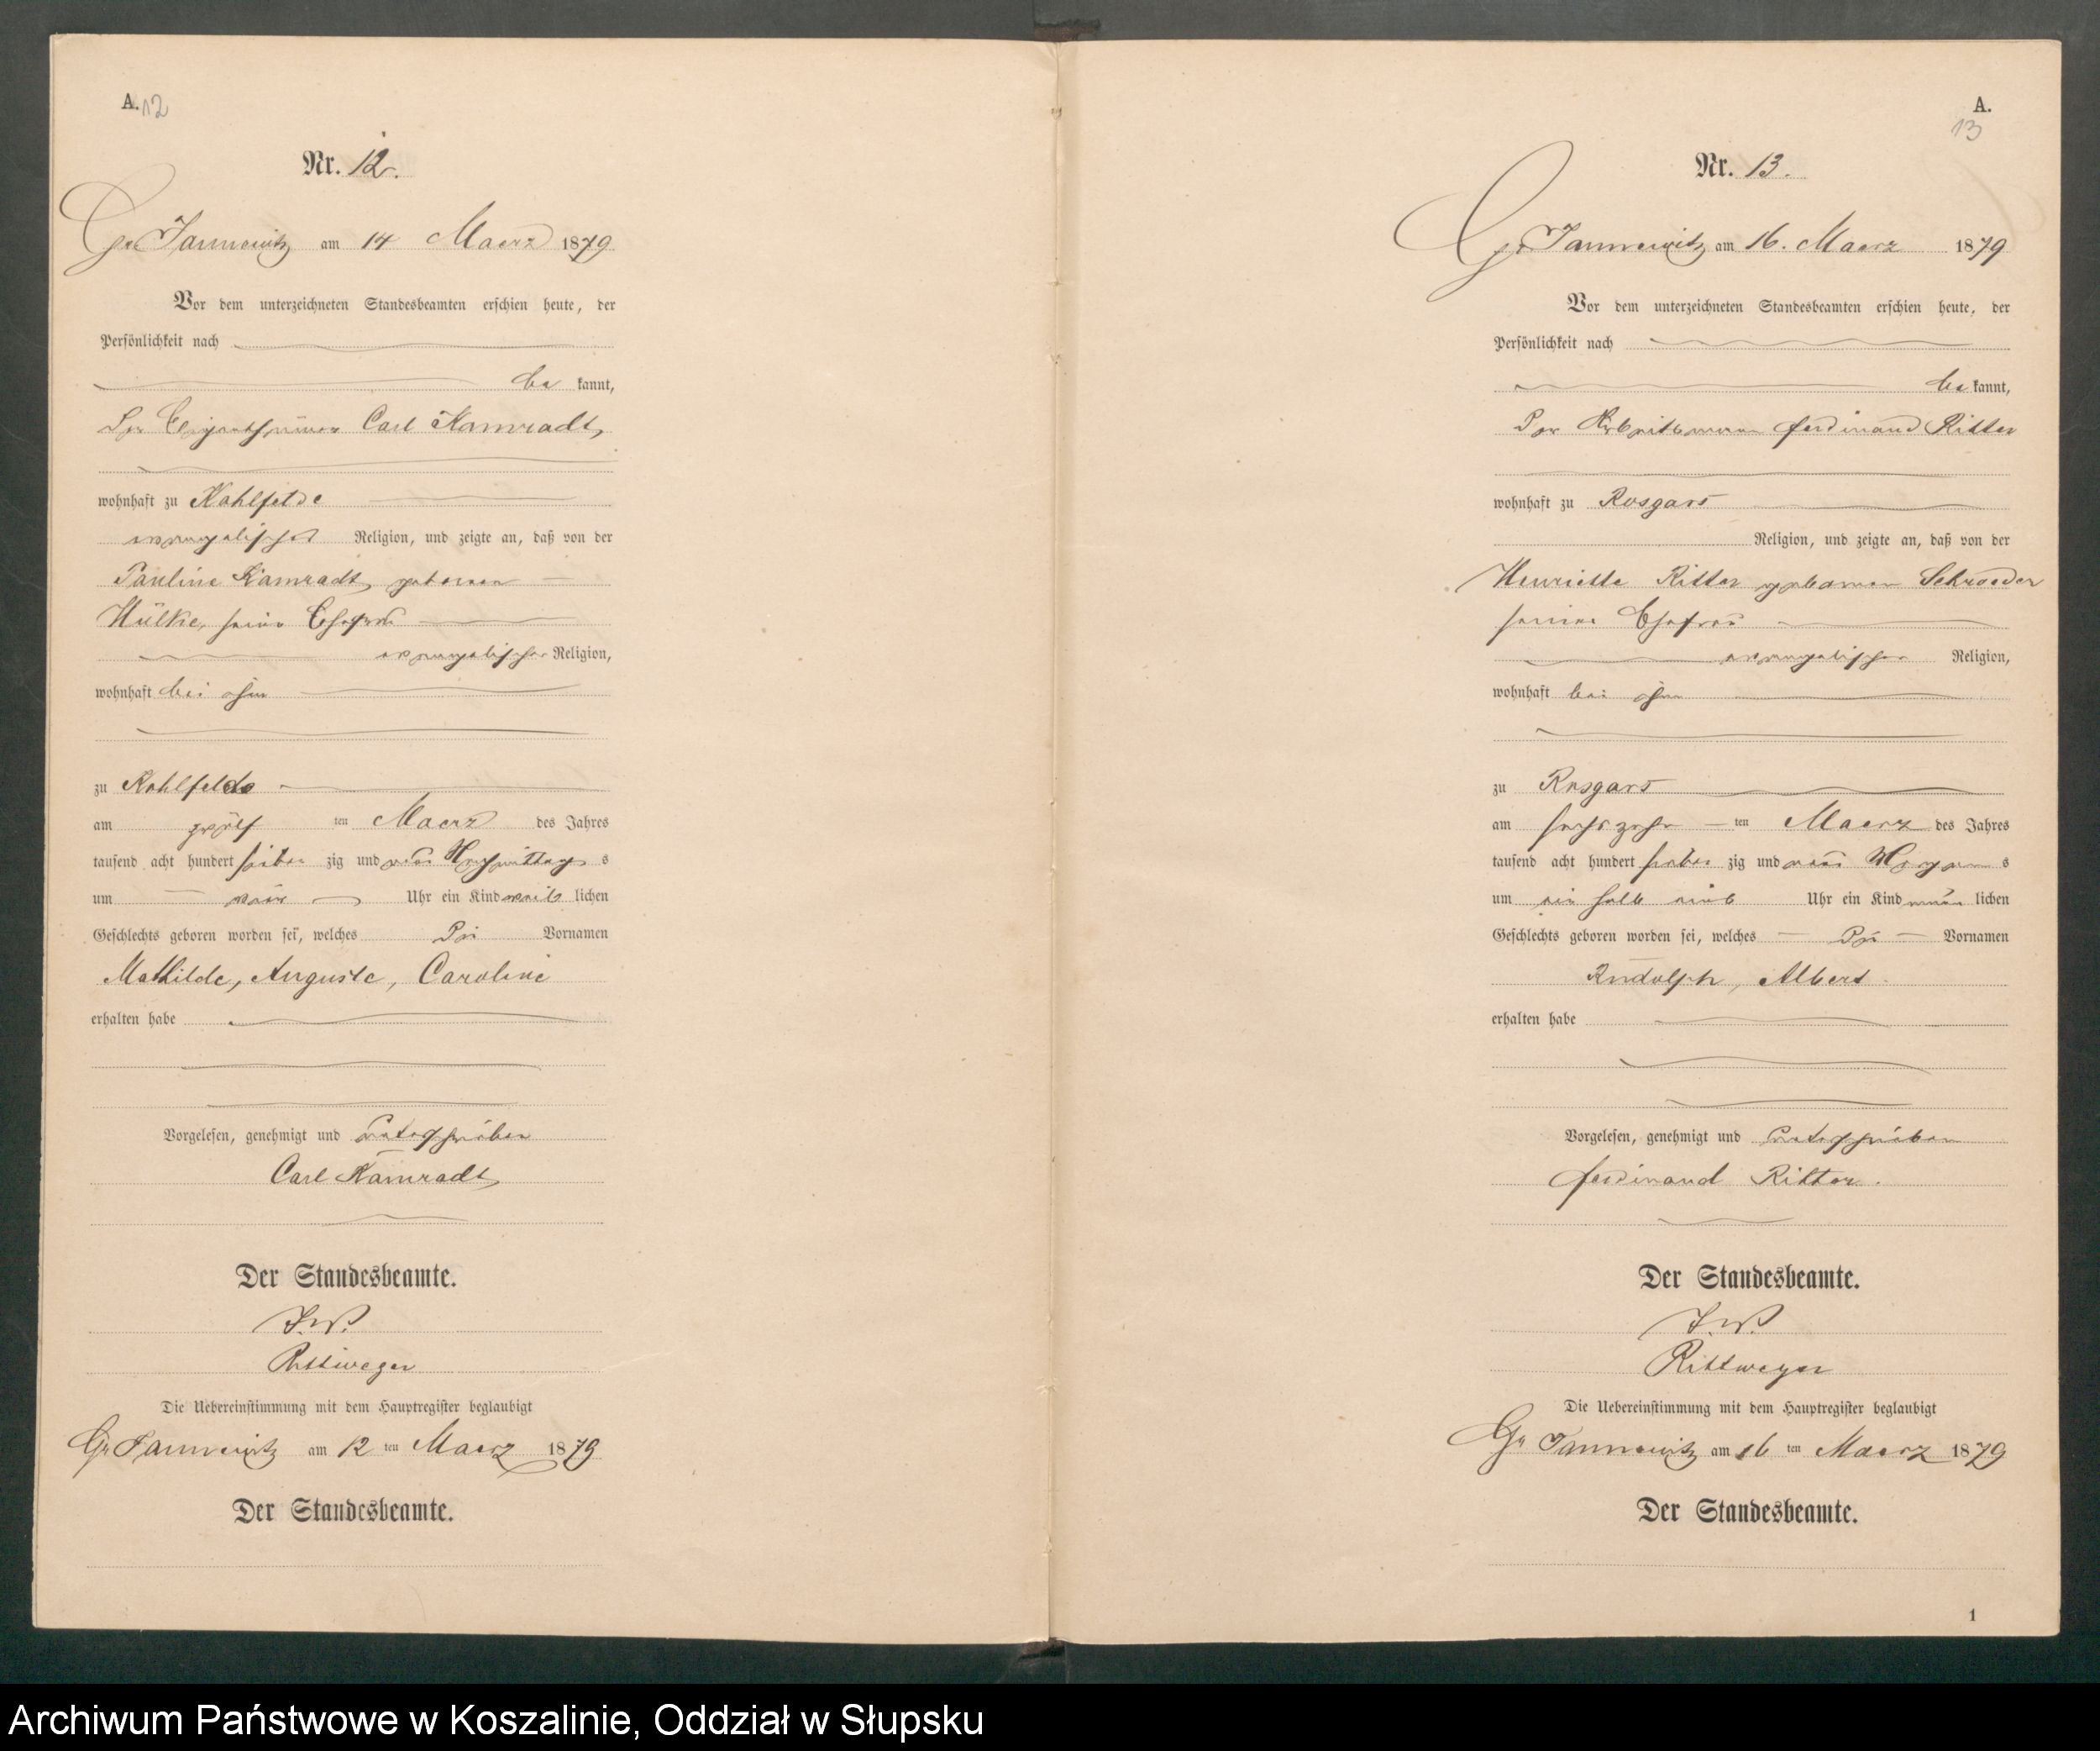 A.
12
Nr. 12.
Gr Jannewitz am 14 Maerz 1879
Vor dem unterzeichneten Standesbeamten erschien heute, der
Persönlichkeit nach
be kannt,
Der Eigenthümer Carl Kamradt,
wohnhaft zu Kahlfelde
evangelischer Religion, und zeigte an, daß von der
Pauline Kamradt geborenen
Hülke, seine Ehefrau
evangelischer Religion,
wohnhaft bei ihm
zu Kahlfelde
am zwölf ten Maerz des Jahres
tausend acht hundert sieben zig und neun Nachmittag s
um Uhr ein Kind weib lichen
Geschlechts geboren worden sei, welches die Vornamen
Mathilde, Auguste, Caroline
erhalten habe
Vorgelesen, genehmigt und unterschrieben
Carl Kamradt
Der Standesbeamte.
J.V.
Rittweger
Die Uebereinstimmung mit dem Hauptregister beglaubigt
Gr Jannewitz am 12 ten Maerz 1879
Der Standesbeamte.
A.
13
Nr. 13.
Gr Jannewitz am 16. Maerz 1879
Vor dem unterzeichneten Standesbeamten erschien heute, der
Persönlichkeit nach
be kannt,
Der Arbeitsmann Ferdinand Ritter
wohnhaft zu Rosgars
Religion, und zeigte an, daß von der
Henriette Ritter geborenen Schroeder
seiner Ehefrau
evangelischer Religion,
wohnhaft bei ihm
zu Rosgars
am sechszehn ten Maerz des Jahres
tausend acht hundert sieben zig und neun Morgen s
um ein halb eins Uhr ein Kind männ lichen
Geschlechts geboren worden sei, welches die Vornamen
Rudolph, Albert
erhalten habe
Vorgelesen, genehmigt und unterschrieben
Ferdinand Ritter.
Der Standesbeamte.
J.V.
Rittweger
Die Uebereinstimmung mit dem Hauptregister beglaubigt
Gr Jannewitz am 16 ten Maerz 1879
Der Standesbeamte.
1
Archiwum Państwowe w Koszalinie, Oddział w Słupsku